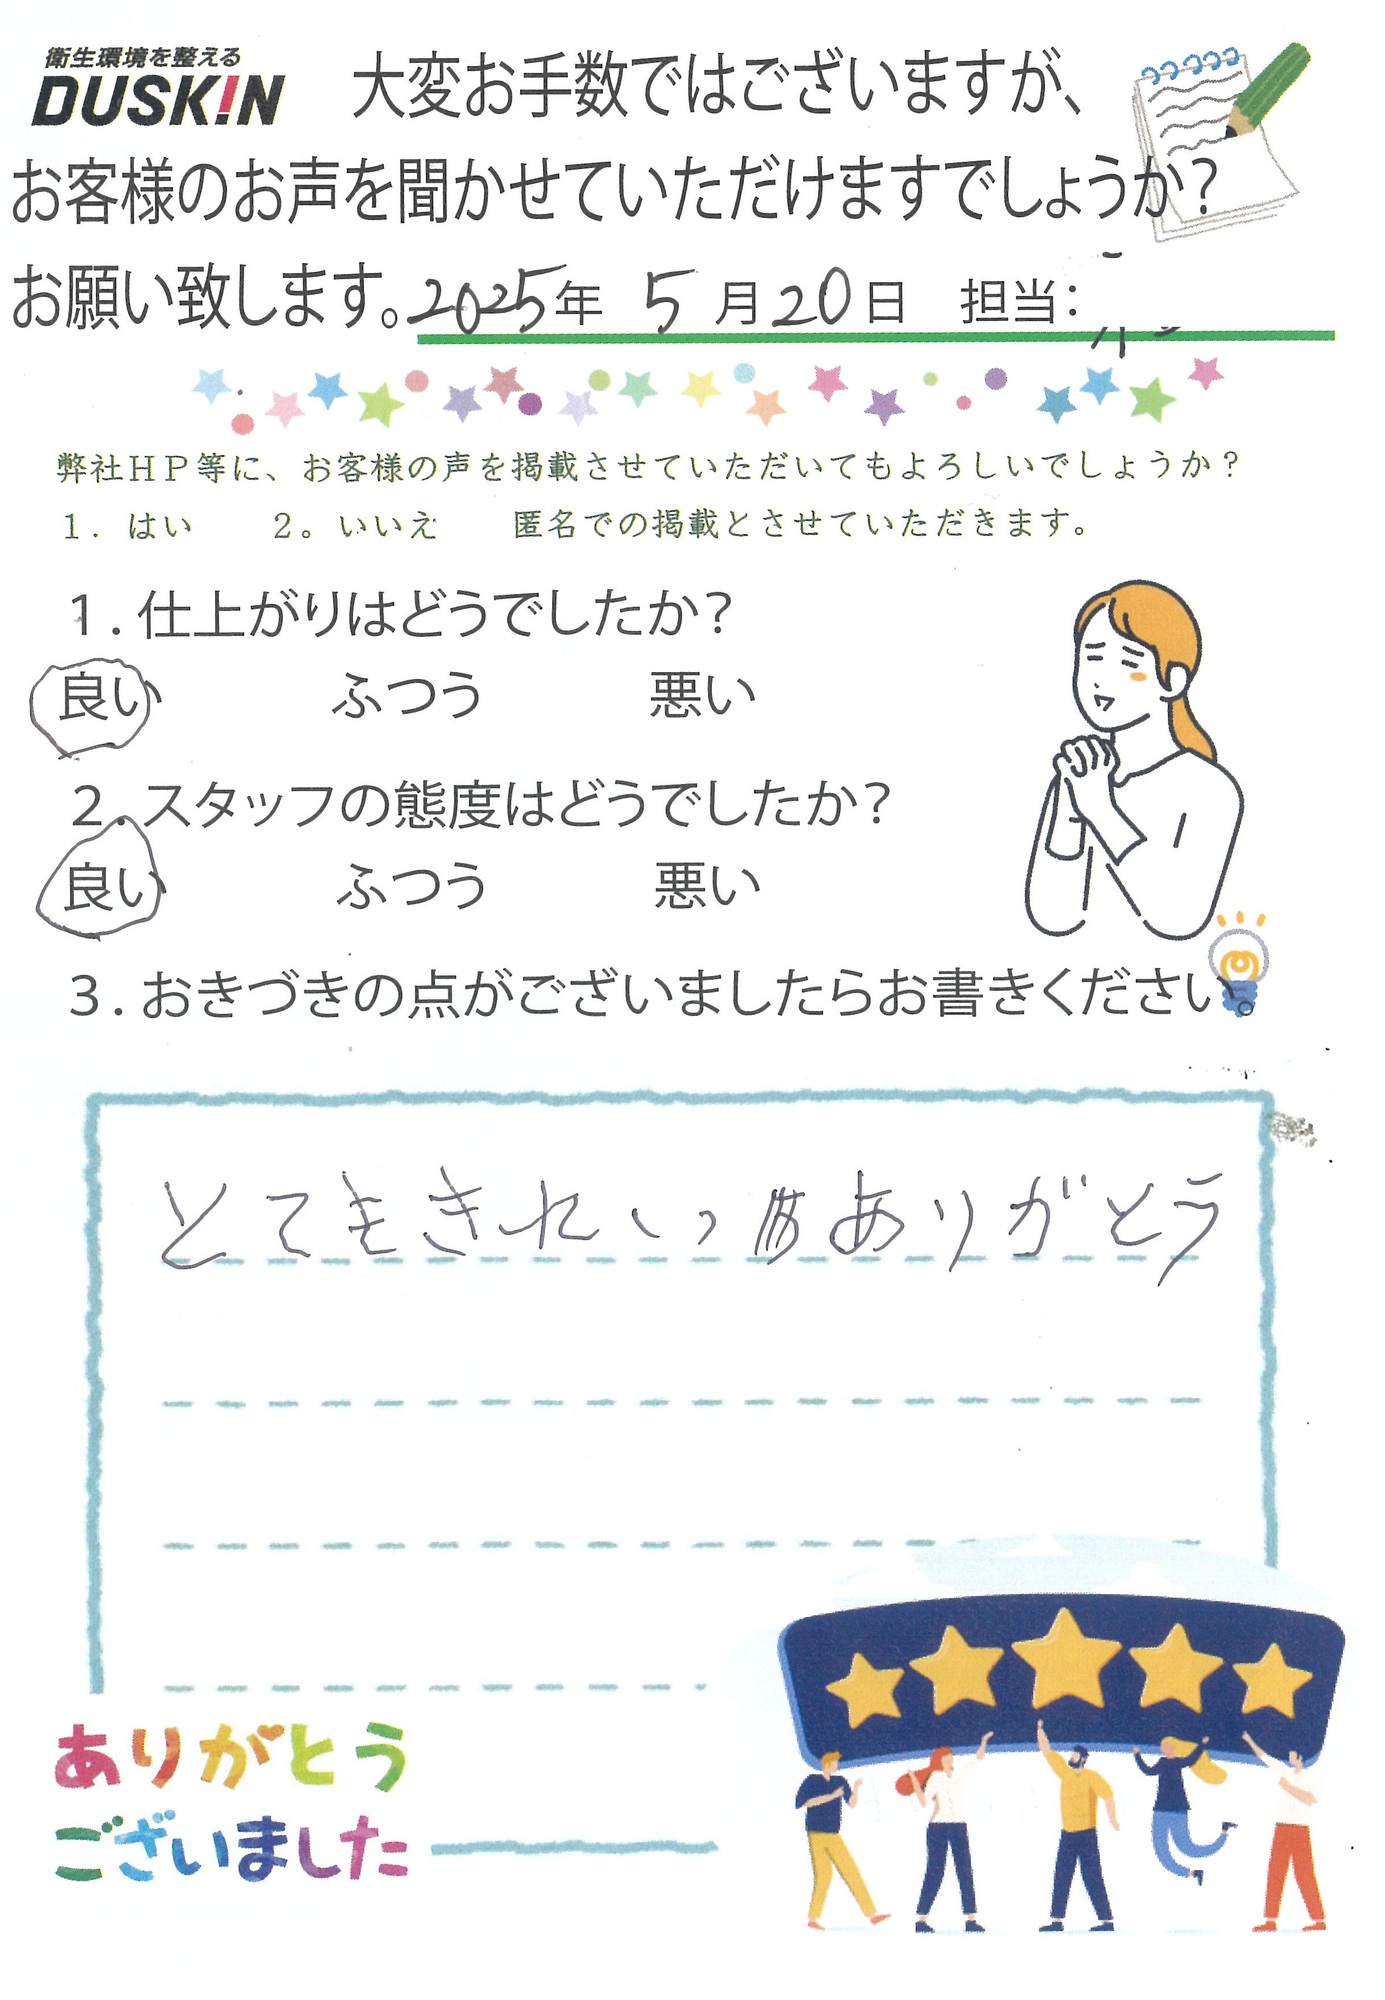 衛生環境を整える
DUSKIN
大変お手数ではございますが、
お客様のお声を聞かせていただけますでしょうか？
お願い致します。2025年 5月20日 担当：
弊社ＨＰ等に、お客様の声を掲載させていただいてもよろしいでしょうか？
１．はい ２。いいえ 匿名での掲載とさせていただきます。
１．仕上がりはどうでしたか？
良い ふつう 悪い
２．スタッフの態度はどうでしたか？
良い ふつう 悪い
３．おきづきの点がございましたらお書きください。
とてもきれい ありがとう
ありがとう
ございました